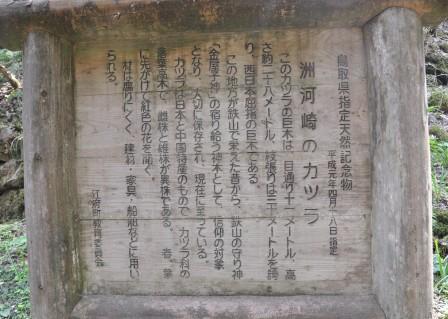 鳥取県指定天然記念物
平成元年四月十八日指定
洲河崎のカツラ
このカツラの巨木は、目通り十一メートル、高
さ約二十八メートル、枝張りは三十メートルを誇
り、西日本屈指の巨木である。
この地方が鉄山で栄えた昔から、鉄山の守り神
「金屋子神」の宿り給う神木として、信仰の対象
となり、大切に保存され、現在に至っている。
カツラは日本と中国特産のもので、カツラ科の
落葉高木で、雌株と雄株が異株である。春、葉
に先がけて紅色の花を開く。
材は腐りにくく、建料・家具・船舶などに用い
られる。
江府町教育委員会